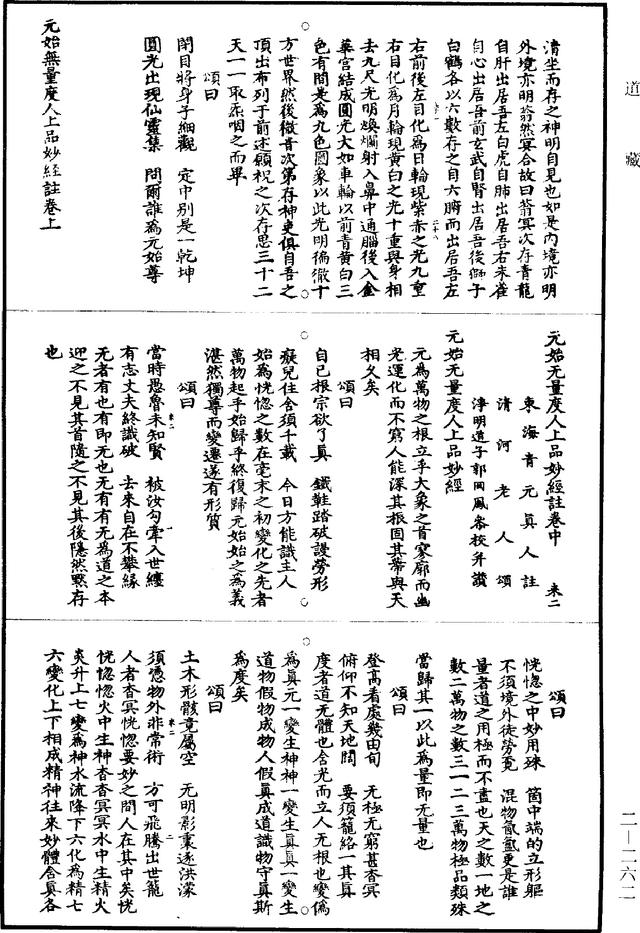 道藏
清坐而存之神明自見也如是內境亦明
外境亦明翁然冥合故曰翁冥次存青龍
自肝出居吾左白虎自肺出居吾右朱雀
自心出居吾前玄武自腎出居吾後獅子
白鶴各以六數存之自六腑而出居吾左
右前後左目化為日輪現紫赤之光九重
右目化為月輪現黃白之光十重與身相
去九尺光明煥爛射入鼻中通腦後入金
華宮結成圓光大如車輪以前青黃白三
色有間是為九色圓象以此光明徧徹十
方世界然後微音次第存神吏俱自吾之
頂出布列于前述願祝之次存思三十二
天一一取炁咽之而畢
頌曰
閉目將身子細觀　定中別是一乾坤
圓光出現仙靈集　問爾誰為元始尊
元始無量度人上品妙經註卷上
元始无量度人上品妙經註卷中　來二
東海青元眞人註
清河老人頌
淨明道子郭岡鳳參校并讚
元始无量度人上品妙經
元為萬物之根立乎大象之首寥廓而幽
光運化而不窮人能深其根固其蒂與天
相久矣
頌曰
自己根宗欲了眞　鐵鞋踏破謾勞形
癡兒住舍須千載　今日方能識主人
始為恍惚之數在毫末之初變化之先者
萬物起乎始歸乎終復歸元始始之為義
湛然獨尊而變遷遂有形質
頌曰
當時愚魯未知賢　被汝勾牽入世纏
有志丈夫終識破　去來自在不攀緣
无者有也有即无也无有有无為道之本
迎之不見其首隨之不見其後隱然默存
也
頌曰
恍惚之中妙用殊　箇中端的立形軀
不須境外徒勞覓　混物氤氳更是誰
量者道之用極而不盡也天之數一地之
數二萬物之數三一二三萬物極品類殊
當歸其一以此為量即无量也
頌曰
登高看處幾由旬　无極无窮甚杳冥
俯仰不知天地闊　要須籠絡一其眞
度者道无體也含光而立人无根也變偽
為眞元一變生神神一變生眞眞一變生
道物假物成物人假眞成道識物守眞斯
為度矣
頌曰
土木形骸竟屬空　无明影裏逐洪濛
須憑物外非常術　方可飛騰出世籠
人者杳冥恍惚要妙之間人在其中矣恍
恍惚惚火中生神杳杳冥冥水中生精火
炎升上七變為神水流降下六化為精七
六變化上下相成精神往來妙體含眞各
二—二六二